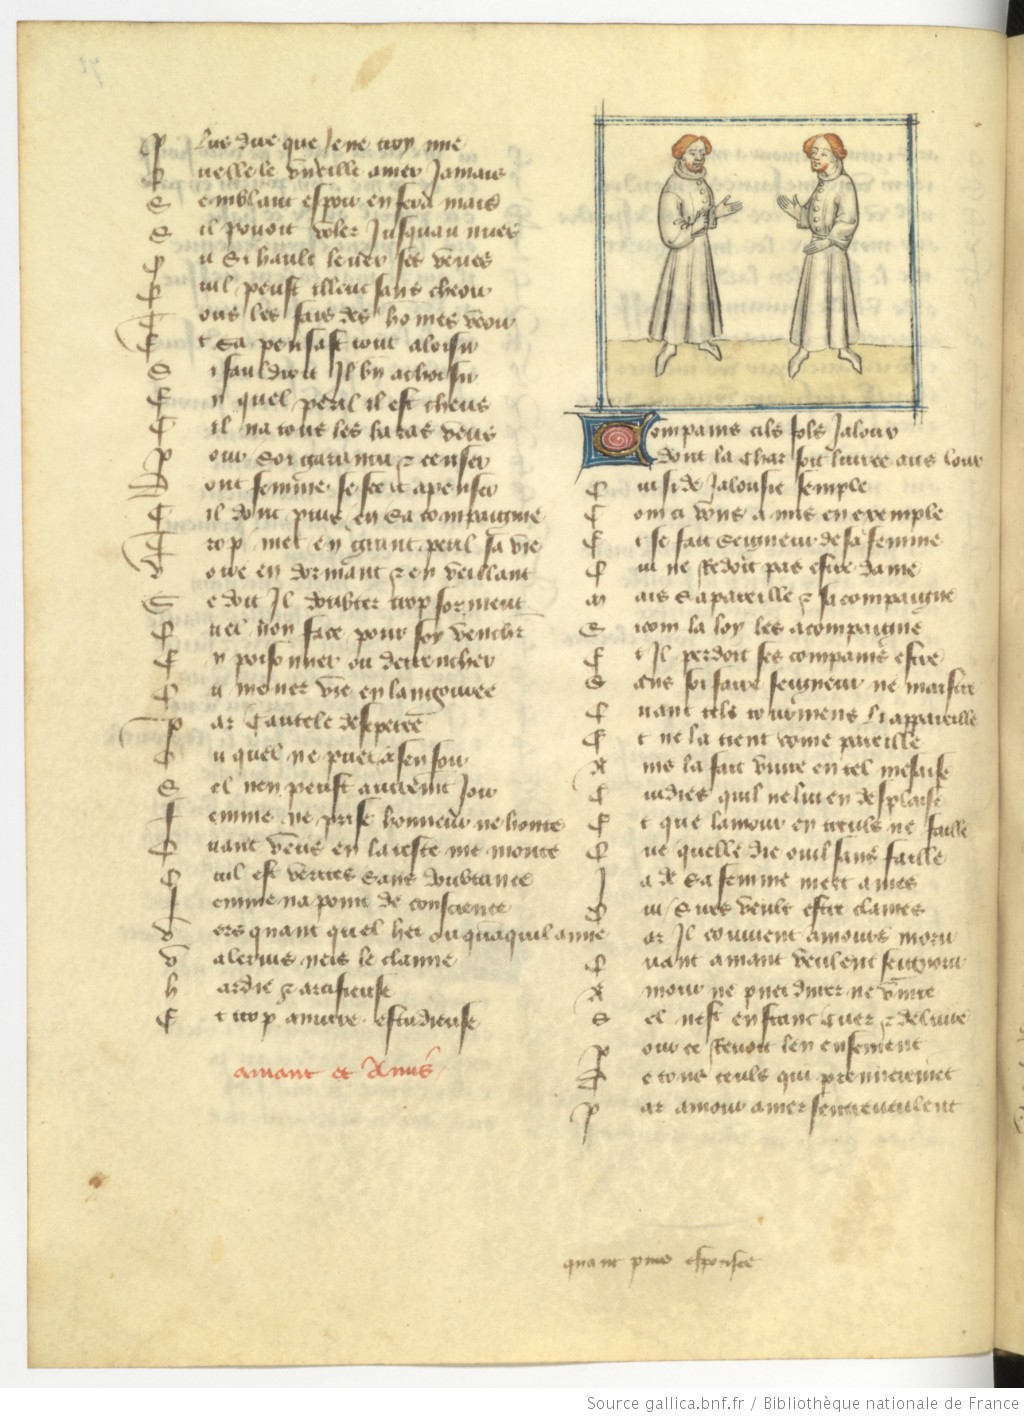 P lus dire que Je ne croy mie
Q uelle le vueille amer Jamais
S emblant espoir en fera mais
S il povoit voler Jusquau nues
O u Si hault lever ses veues
Q uil peust illeuc sans cheoir
T ous les fais des homes veoir
E t Sa pensast tout a loisir
S i fauldroit Il bn a choisir
E n quel peril il est cheus
C il na tous les baras veus
P our Soi garantir & tenser
D ont femme se scet apenser
C il dort puis en Sa compaignie
T rop met en grant peril sa vie
V oire en dormant & en veillant
S e doit Il doubter trop forment
Q uel non face pour soy venchier
E n poisonner ou detrencher
O u mener vie en langouree
P ar Cautele desesperee
O u quel ne puet a sen fou
S el nen peust autrement Jou
F emme ne prise honneur ne honte
Q uant Venus en la teste me monte
C est verites Sans doubtance
F emme na point de conscience
V ers quant quel het ou quaquil aime
V alerius neis le claime
h ardie & artifieuse
E t trop a nuire estudieuse
amant et Amis
Compains cils fols Jalour
dont la Char soit livree aus lour
Q ui Si de Jalousie Semple
C om ci vous a mis en exemple
E t se fait Seigneur de sa femme
Q ui ne Redoit pas estre dame
M ais Sa pareille & sa compaigne
S icom la loy les acompaigne
E t Il perdoit ses compains estre
S ans soi faire seigneur ne maistre
Q uant tels tourmens li appareille
E t ne la tient come pareille
A ins la fait vivre en tel mesaise
C uidies quil ne lui en desplaise
E t que lamour entreuls ne faille
Q ue quelle die ouil sans faille
J a de Sa femme niert ames
Q ui Sires veult estre clames
C ar Il couvient amours morir
Q uant amant veulent seignorir
A mour ne puet durer ne vivre
S el nest en franc Cuer & delivre
P our ce Revoit len ensement
D e tous ceuls qui premierement
P ar amour amer sentreveulent
quant puis espouse
Source gallica.bnf.fr / Bibliothèque nationale de France